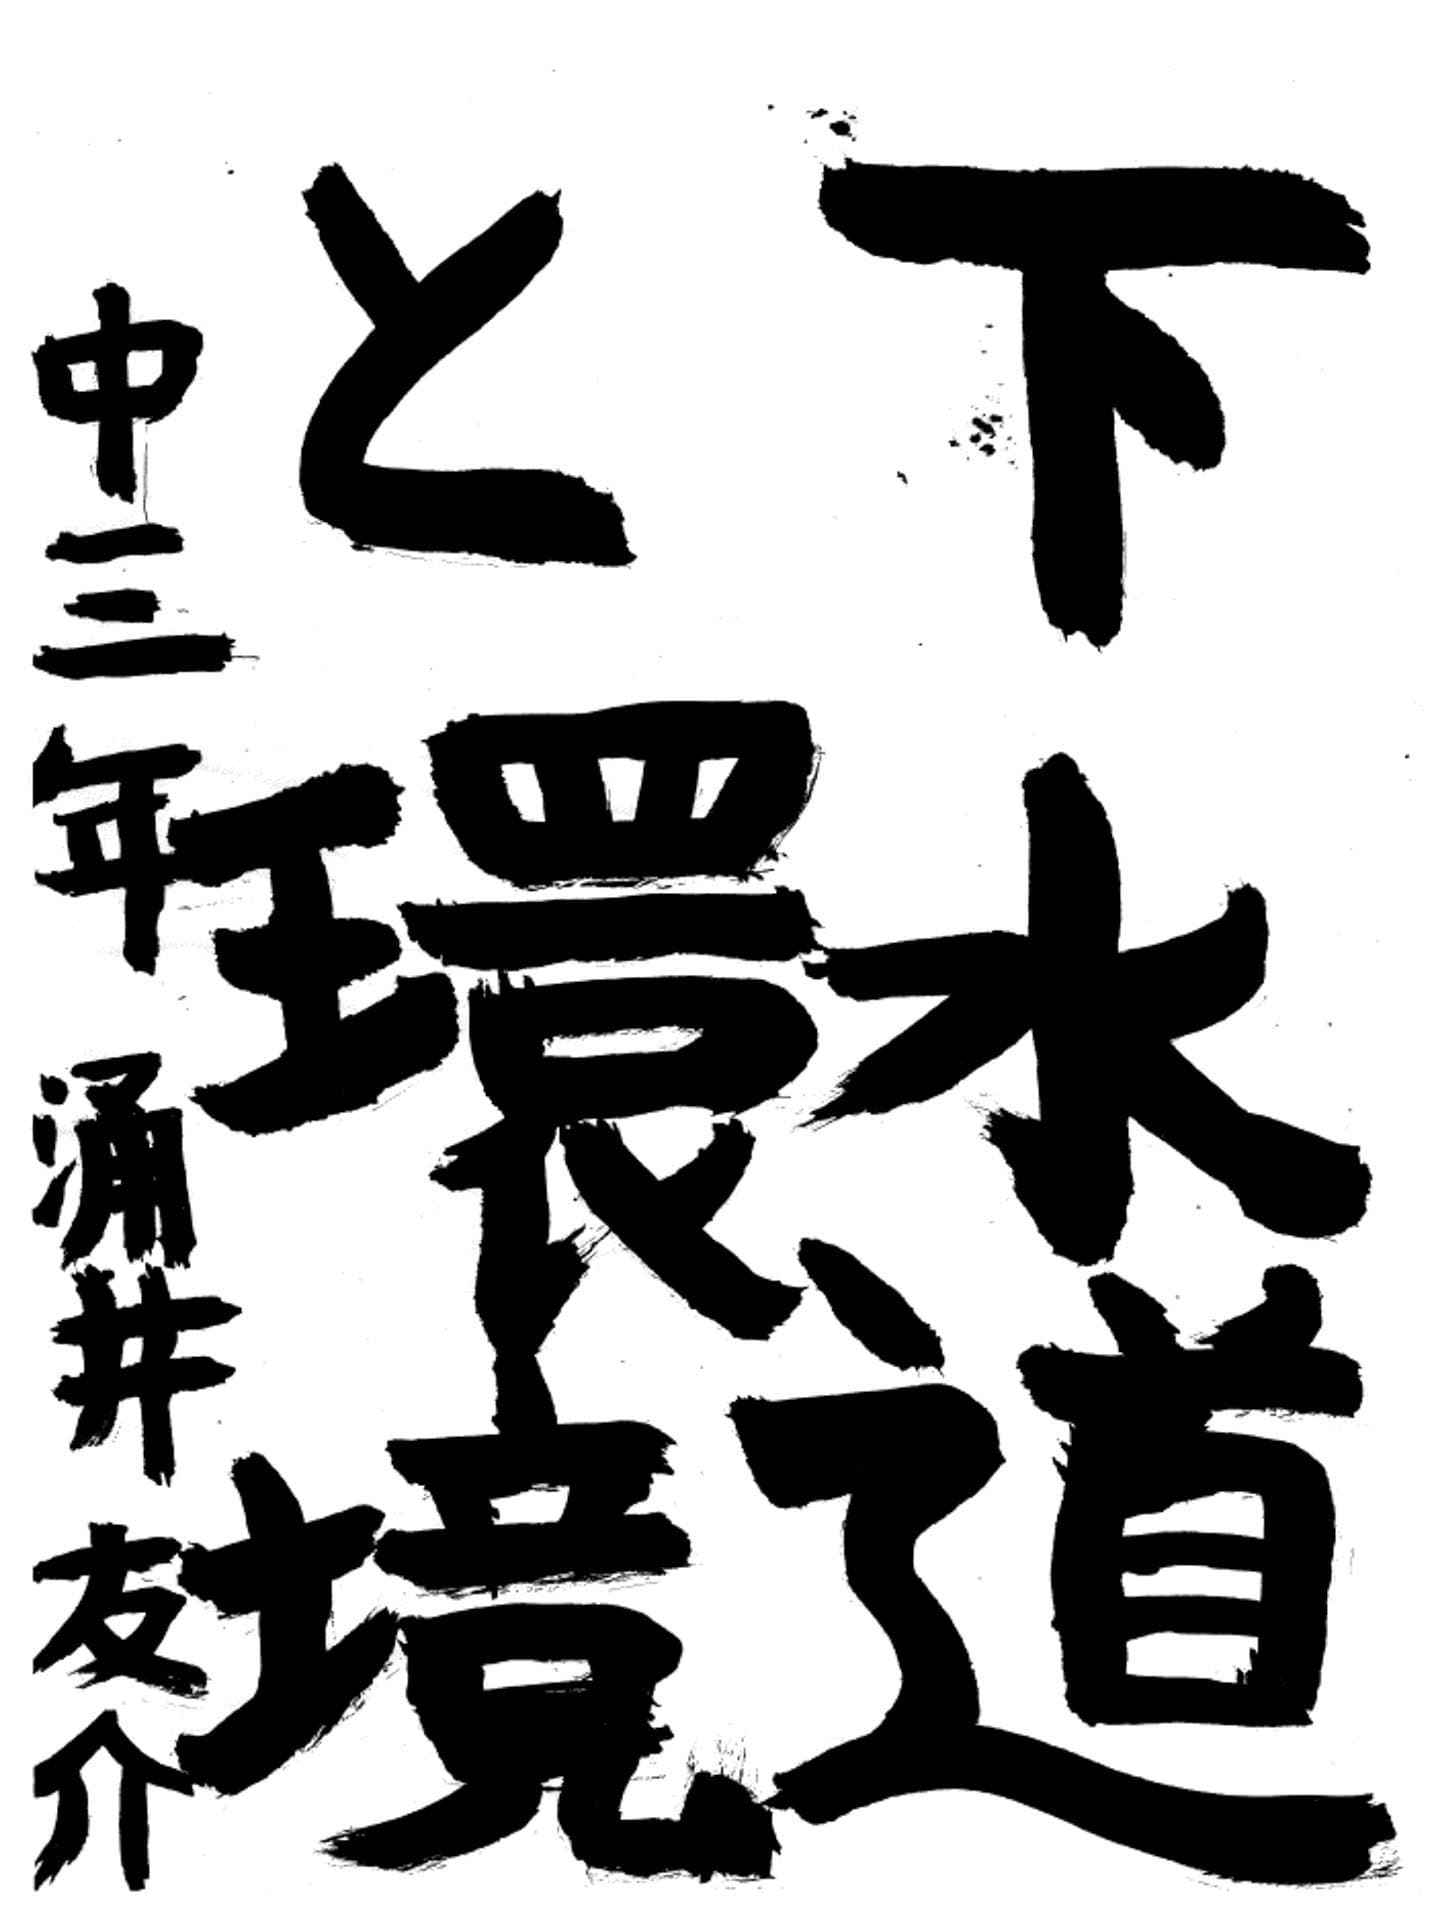 下水道
と環境
中三年 涌井友介